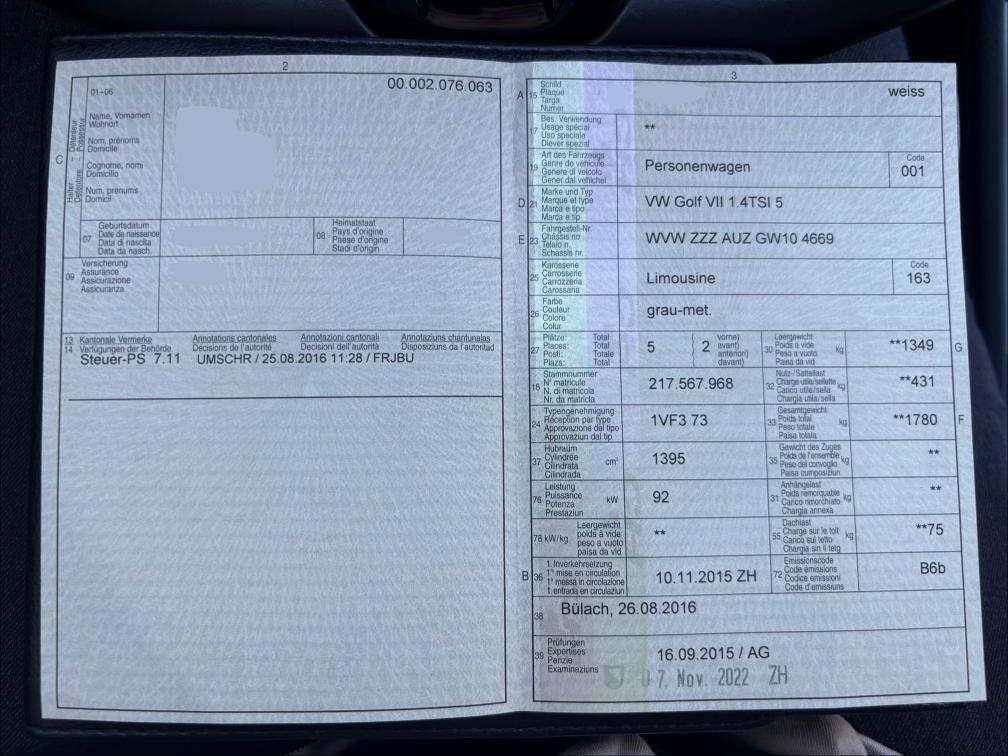 2
00.002.076.063
01-06
Halter Détenteur
Detentore Possessur
C
Name, Vornamen
Wohnort
Nom, prénoms
Domicile
Cognome, nomi
Domicilio
Num, prenums
Domicil
07
Geburtsdatum
Date de naissance
Data di nascita
Data da nasch.
08
Heimatstaat
Pays d'origine
Paese d'origine
Stadi d'origin
09
Versicherung
Assurance
Assicurazione
Assicuranza
13 Kantonale Vermerke Annotations cantonales Annotazioni cantonali Annotaziuns chantunalas
14 Verfügungen der Behörde Décisions de l'autorité Decisioni dell'autorità Disposiziuns da l'autoritad
Steuer-PS 7.11 UMSCHR / 25.08.2016 11:28 / FRJBU
3
A 15
Schild
Plaque
Targa
Numer
weiss
17
Bes. Verwendung
Usage spécial
Uso speciale
Diever spezial
**
19
Art des Fahrzeugs
Genre de véhicule
Genere di veicolo
Gener dal vehichel
Personenwagen
Code
001
D 21
Marke und Typ
Marque et type
Marca e tipo
Marca e tip
VW Golf VII 1.4TSI 5
E 23
Fahrgestell-Nr.
Châssis no
Telaio n.
Schassis nr.
WVW ZZZ AUZ GW10 4669
25
Karosserie
Carrosserie
Carrozzeria
Carossaria
Limousine
Code
163
26
Farbe
Couleur
Colore
Colur
grau-met.
27
Plätze: Total
Places: Total
Posti: Totale
Plazs: Total
5
2
vorne)
avant)
anteriori)
davant)
30
Leergewicht
Poids à vide
Peso a vuoto
Paisa da vid
kg
**1349
G
18
Stammnummer
N° matricule
N. di matricola
Nr. da matricla
217.567.968
32
Nutz-/Sattellast
Charge utile/sellette
Carico utile/sella
Chargia utila/sella
kg
**431
24
Typengenehmigung
Réception par type
Approvazione del tipo
Approvaziun dal tip
1VF3 73
33
Gesamtgewicht
Poids total
Peso totale
Paisa totala
kg
**1780
F
37
Hubraum
Cylindrée
Cilindrata
Cilindrada
cm³
1395
35
Gewicht des Zuges
Poids de l'ensemble
Peso del convoglio
Paisa cumposiziun
kg
**
76
Leistung
Puissance
Potenza
Prestaziun
kW
92
31
Anhängelast
Poids remorquable
Carico rimorchiato
Chargia annexa
kg
**
78 kW/kg
Leergewicht
poids à vide
peso a vuoto
paisa da vid
**
55
Dachlast
Charge sur le toit
Carico sul tetto
Chargia sin il tetg
kg
**75
B 36
1. Inverkehrsetzung
1re mise en circulation
1a messa in circolazione
1. entrada en circulaziun
10.11.2015 ZH
72
Emissionscode
Code émissions
Codice emissioni
Code d'emissiuns
B6b
38
Bülach, 26.08.2016
39
Prüfungen
Expertises
Perizie
Examinaziuns
16.09.2015 / AG
07. Nov. 2022 ZH